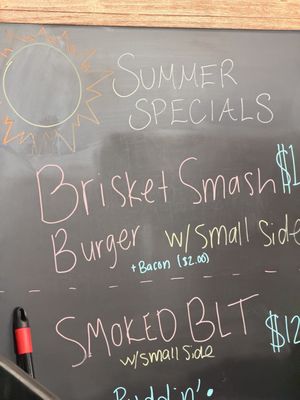 SUMMER
SPECIALS
Brisket Smash $1
Burger w/Small Side
+ Bacon ($2.00)
SMOKED BLT $12
w/small side
Puddin'